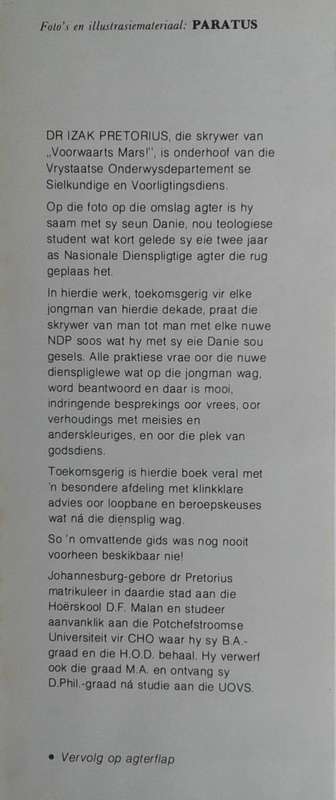 Foto's en illustrasiemateriaal: PARATUS
DR IZAK PRETORIUS, die skrywer van
„Voorwaarts Mars!", is onderhoof van die
Vrystaatse Onderwysdepartement se
Sielkundige en Voorligtingsdiens.
Op die foto op die omslag agter is hy
saam met sy seun Danie, nou teologiese
student wat kort gelede sy eie twee jaar
as Nasionale Dienspligtige agter die rug
geplaas het.
In hierdie werk, toekomsgerig vir elke
jongman van hierdie dekade, praat die
skrywer van man tot man met elke nuwe
NDP soos wat hy met sy eie Danie sou
gesels. Alle praktiese vrae oor die nuwe
dienspliglewe wat op die jongman wag,
word beantwoord en daar is mooi,
indringende besprekings oor vrees, oor
verhoudings met meisies en
anderskleuriges, en oor die plek van
godsdiens.
Toekomsgerig is hierdie boek veral met
'n besondere afdeling met klinkklare
advies oor loopbane en beroepskeuses
wat ná die diensplig wag.
So 'n omvattende gids was nog nooit
voorheen beskikbaar nie!
Johannesburg-gebore dr Pretorius
matrikuleer in daardie stad aan die
Hoërskool D.F. Malan en studeer
aanvanklik aan die Potchefstroomse
Universiteit vir CHO waar hy sy B.A.-
graad en die H.O.D. behaal. Hy verwerf
ook die graad M.A. en ontvang sy
D.Phil.-graad ná studie aan die UOVS.
● Vervolg op agterflap